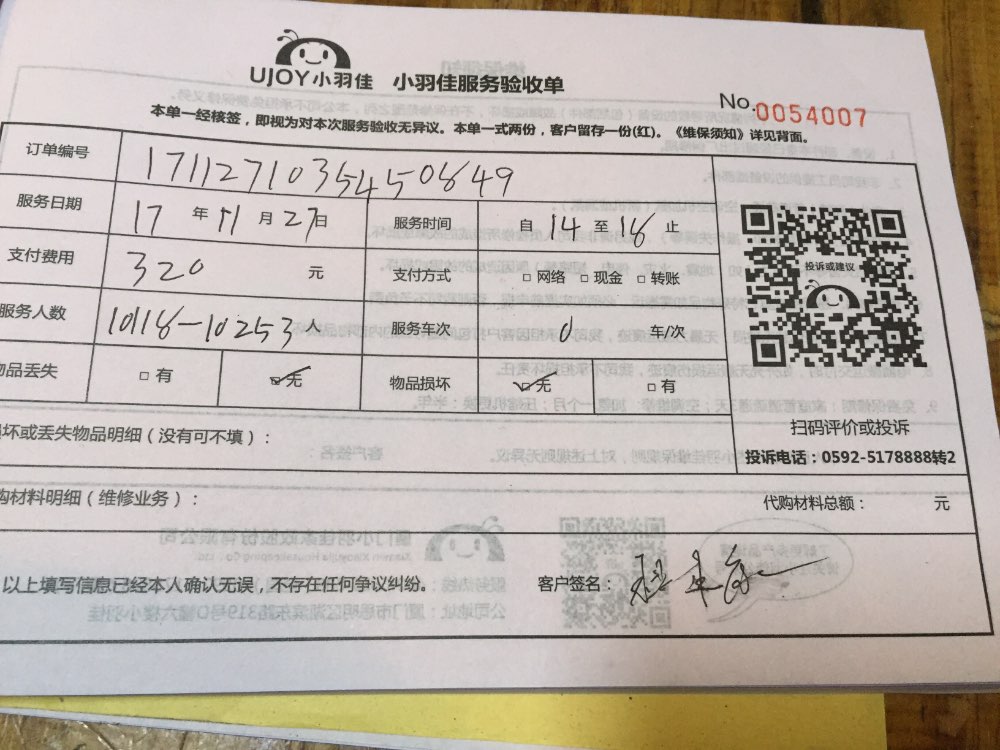 UJOY小羽佳 小羽佳服务验收单
No.0054007
本单一经核签，即视为对本次服务验收无异议。本单一式两份，客户留存一份(红)。《维保须知》详见背面。
订单编号 17112710354450849
服务日期 17 年 11 月 27 日 服务时间 自 14 至 16 止
支付费用 320 元 支付方式 □ 网络 □ 现金 □ 转账
服务人数 10118-10253 人 服务车次 0 车/次
物品丢失 □ 有 ☑ 无 物品损坏 ☑ 无 □ 有
投诉或建议
扫码评价或投诉
投诉电话：0592-5178888转2
损坏或丢失物品明细（没有可不填）：
购材料明细（维修业务）： 代购材料总额： 元
以上填写信息已经本人确认无误，不存在任何争议纠纷。 客户签名：